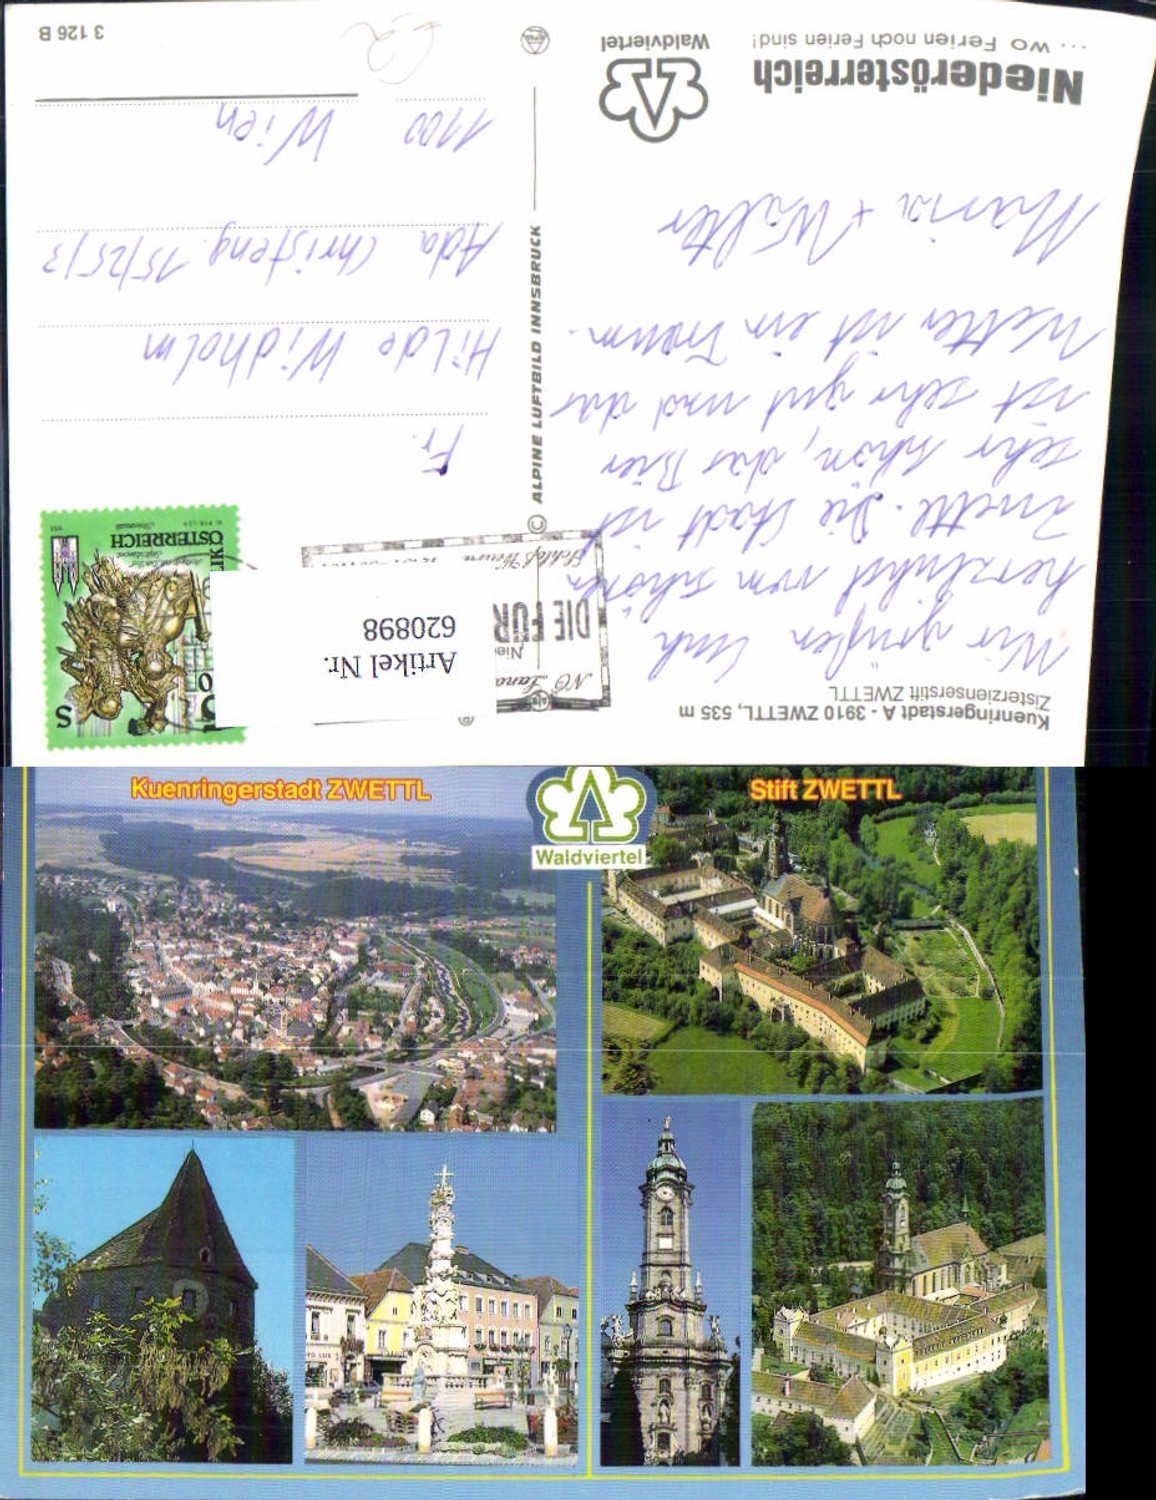 Kuenringerstadt A - 3910 ZWETTL, 535 m
Zisterzienserstift ZWETTL
Wir grüßen Euch
herzlichst vom schönen
Zwettl. Die Stadt ist
sehr schön, das Bier
ist sehr gut und das
Wetter ist ein Traum.
Maria + Walter
Niederösterreich
... wo Ferien noch Ferien sind!
Waldviertel
© ALPINE LUFTBILD INNSBRUCK
DIE FÜR
Artikel Nr.
620898
S
ÖSTERREICH
Fr.
Hilde Widholm
Ada Christeng. 15/25/3
1100 Wien
3 126 B
Kuenringerstadt ZWETTL
Stift ZWETTL
Waldviertel